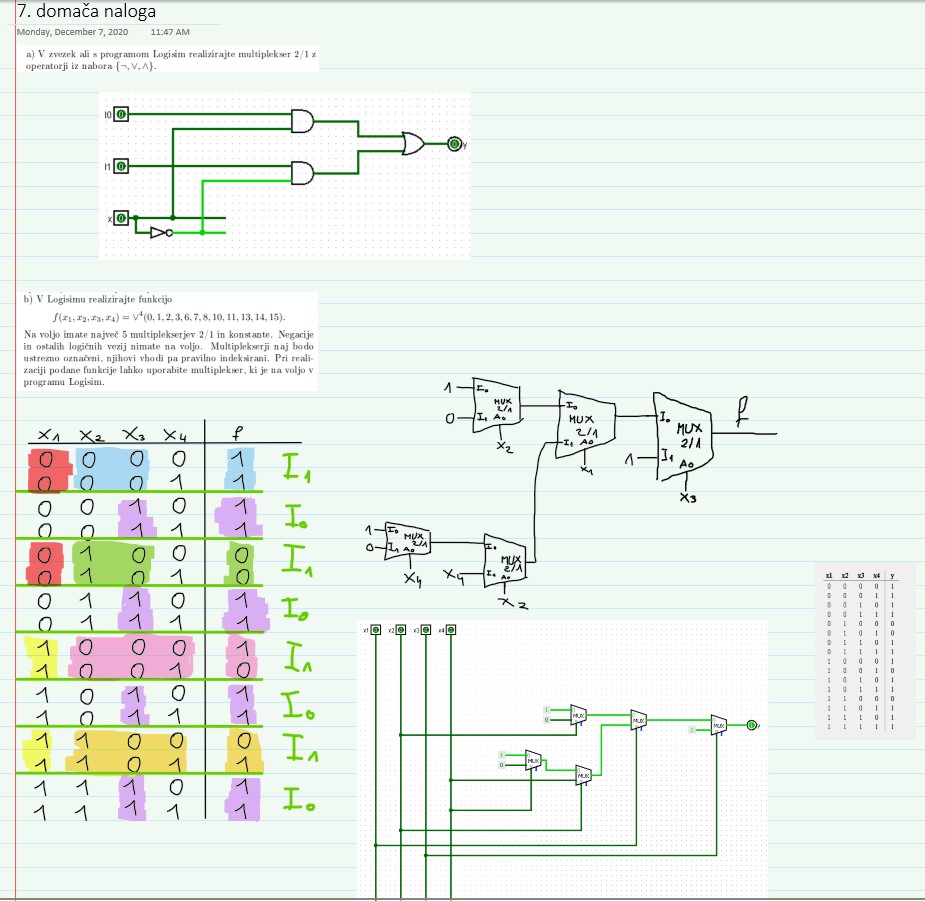 7. domača naloga
Monday, December 7, 2020 11:47 AM
a) V zvezek ali s programom Logisim realizirajte multiplekser 2/1 z
operatorji iz nabora {¬, ∨, ∧}.
I0 0
I1 0
x 0
0 y
b) V Logisimu realizirajte funkcijo
f(x₁, x₂, x₃, x₄) = ∨⁴(0, 1, 2, 3, 6, 7, 8, 10, 11, 13, 14, 15).
Na voljo imate največ 5 multiplekserjev 2/1 in konstante. Negacije
in ostalih logičnih vezij nimate na voljo. Multiplekserji naj bodo
ustrezno označeni, njihovi vhodi pa pravilno indeksirani. Pri reali-
zaciji podane funkcije lahko uporabite multiplekser, ki je na voljo v
programu Logisim.
x1 x2 x3 x4 f
0 0 0 0 1
0 0 0 1 1
I1
0 0 1 0 1
0 0 1 1 1
I0
0 1 0 0 0
0 1 0 1 0
I1
0 1 1 0 1
0 1 1 1 1
I0
1 0 0 0 1
1 0 0 1 0
I1
1 0 1 0 1
1 0 1 1 1
I0
1 1 0 0 0
1 1 0 1 1
I1
1 1 1 0 1
1 1 1 1 1
I0
1 I0 MUX 2/1
0 I1 A0
x2
I0 MUX 2/1
I1 A0
x1
I0 MUX 2/1
1 I1 A0
x3
f
1 I0 MUX 2/1
0 I1 A0
x4
I0 MUX 2/1
x4 I1 A0
x2
x1 0 x2 0 x3 0 x4 0
1
0
MUX
MUX
1
MUX
y
1
0
MUX
MUX
x1 x2 x3 x4 y
0 0 0 0 1
0 0 0 1 1
0 0 1 0 1
0 0 1 1 1
0 1 0 0 0
0 1 0 1 0
0 1 1 0 1
0 1 1 1 1
1 0 0 0 1
1 0 0 1 0
1 0 1 0 1
1 0 1 1 1
1 1 0 0 0
1 1 0 1 1
1 1 1 0 1
1 1 1 1 1